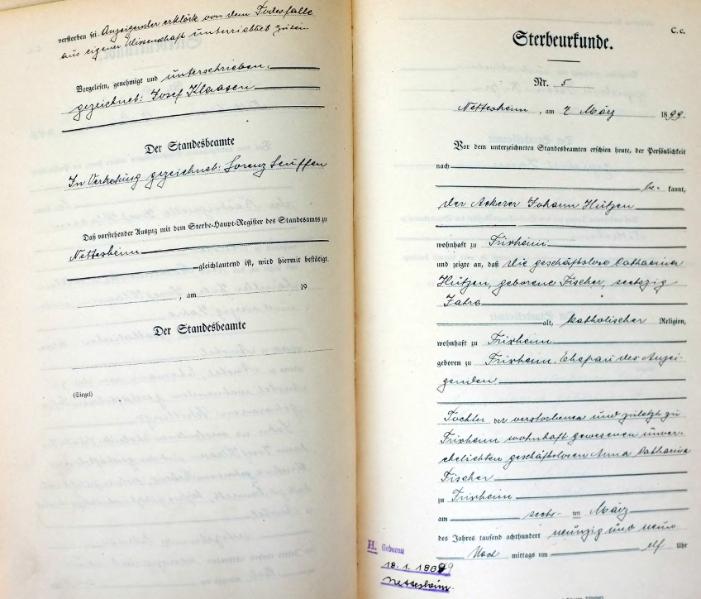 verstorben sei. Anzeigender erklärte von dem Todesfalle
aus eigener Wissenschaft unterrichtet zu sein
Vorgelesen, genehmigt und unterschrieben.
gezeichnet: Josef Klaasen
Der Standesbeamte
In Vertretung gezeichnet: Lorenz
Daß vorstehender Auszug mit dem Sterbe-Haupt-Register des Standesamts zu
Nettersheim
gleichlautend ist, wird hiermit bestätigt.
, am 19
Der Standesbeamte
(Siegel)
C. c.
Sterbeurkunde.
Nr. 5
Nettersheim, am 7 März 1899.
Vor dem unterzeichneten Standesbeamten erschien heute, der Persönlichkeit
nach
be- kannt,
der Ackerer Johann
wohnhaft zu
und zeigte an, daß die geschäftslose Catharina
geborene Fischer, sechszig
Jahre
alt, katholischer Religion,
wohnhaft zu
geboren zu Ehefrau des Anzei-
genden
Tochter der verstorbenen und zuletzt zu
wohnhaft gewesenen unver-
ehelichten geschäftslosen Anna Catharina
Fischer
zu
am sechs- ten März
des Jahres tausend achthundert neunzig und neun
Vor mittags um elf Uhr
H. Geboren
Nettersheim.